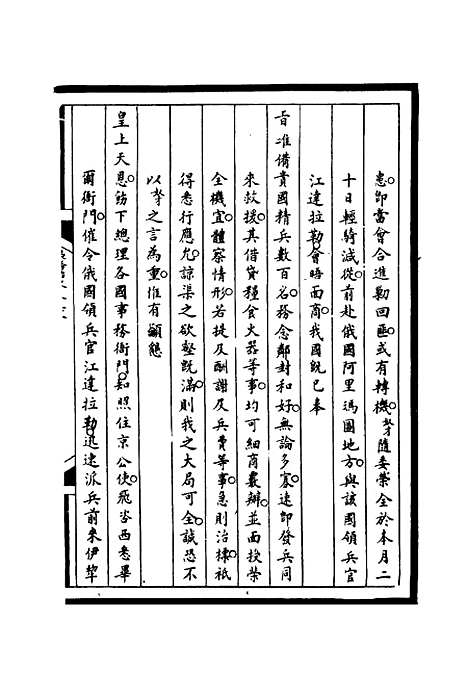 恵卽當會合進勒回匪或有轉機。弟隨委榮全於本月二
十日輕騎減從。前赴俄國阿里瑪圖地方。與該國領兵官
江達拉勒會晤面商。我國旣已奉
旨准備貴國精兵數百名。務念鄰封和好。無論多寡速卽發兵同
來救援。其借貸糧食火器等事。均可細商覈辦。並面授榮
全機宜。體察情形。若提及酬謝及兵費等事。急則治標。祇
得悉行應允。諒渠之欲壑旣滿。則我之大局可全。誠恐不
以弟之言為重。惟有籲懇
皇上天恩。飭下總理各國事務衙門。知照住京公使。飛咨西悉畢
爾衙門。催令俄國領兵官江達拉勒迅速派兵前來伊犂